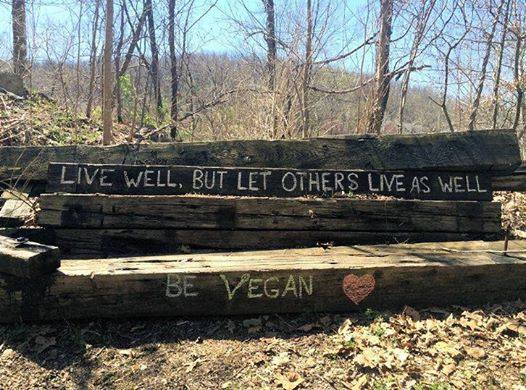 LIVE WELL, BUT LET OTHERS LIVE AS WELL
BE VEGAN